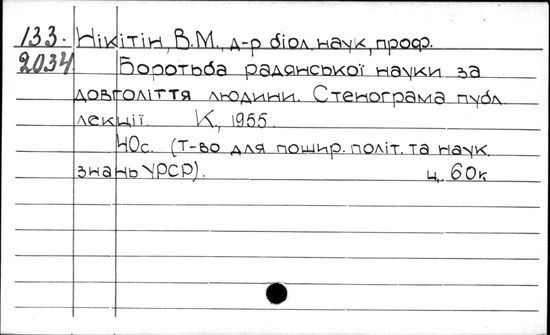 133. Нікітін, В.М., д-р біол. наук, проф.
2034 Боротьба радянської науки за
довголіття людини. Стенограма публ.
лекції. К, 1955.
40с. (Т-во для пошир. політ. та наук.
знань УРСР). ц. 60к